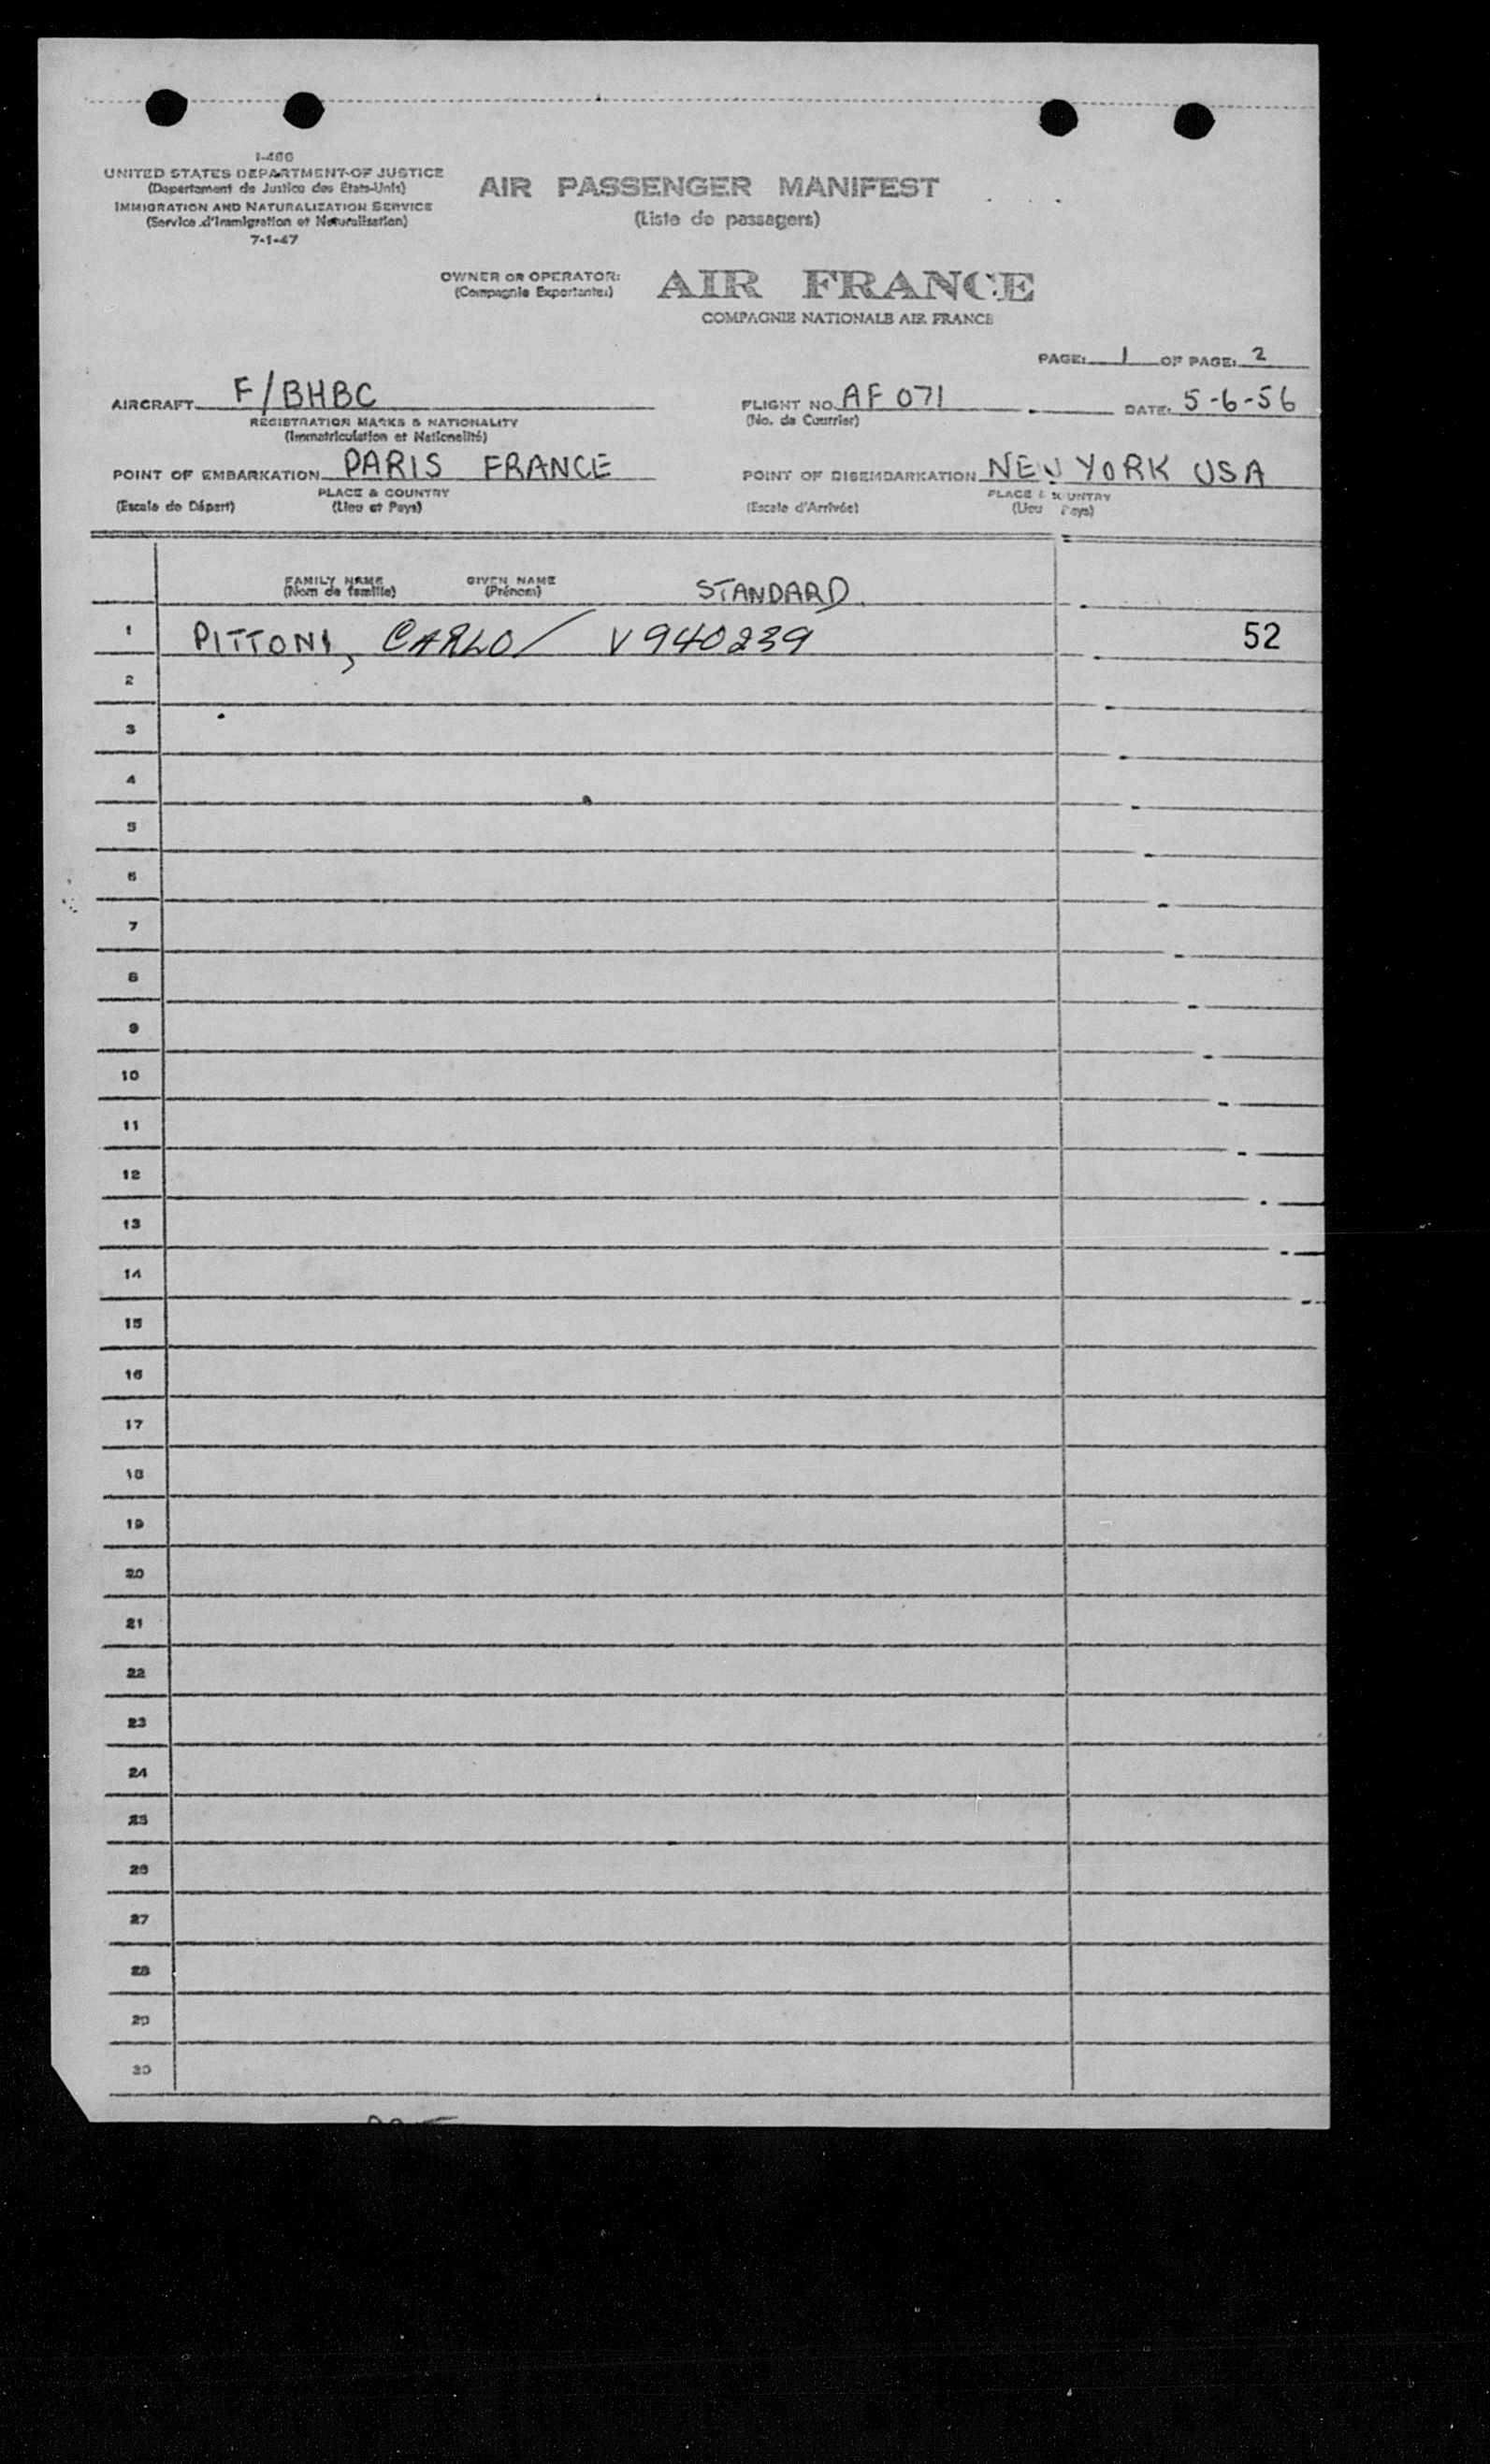 I-466
UNITED STATES DEPARTMENT OF JUSTICE
(Departement de Justice des Etats-Unis)
IMMIGRATION AND NATURALIZATION SERVICE
(Service d'Immigration et Naturalisation)
7-1-47
AIR PASSENGER MANIFEST
(Liste de passagers)
OWNER OR OPERATOR:
(Compagnie Exportante:)
AIR FRANCE
COMPAGNIE NATIONALE AIR FRANCE
PAGE: 1 OF PAGE: 2
AIRCRAFT F/BHBC FLIGHT NO. AF 071 DATE: 5-6-56
REGISTRATION MARKS & NATIONALITY (No. de Courrier)
(Immatriculation et Nationalité)
POINT OF EMBARKATION PARIS FRANCE POINT OF DISEMBARKATION NEW YORK USA
PLACE & COUNTRY PLACE & COUNTRY
(Escale de Départ) (Lieu et Pays) (Escale d'Arrivée) (Lieu Pays)
FAMILY NAME GIVEN NAME STANDARD
(Nom de famille) (Prénom)
1 PITTONI, CARLO / V940239 52
2
3
4
5
6
7
8
9
10
11
12
13
14
15
16
17
18
19
20
21
22
23
24
25
26
27
28
29
30